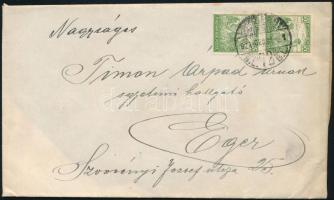 Nagyságos
Timon Árpád úrnak
egyetemi hallgató
Eger
Szvorényi József utca 25.